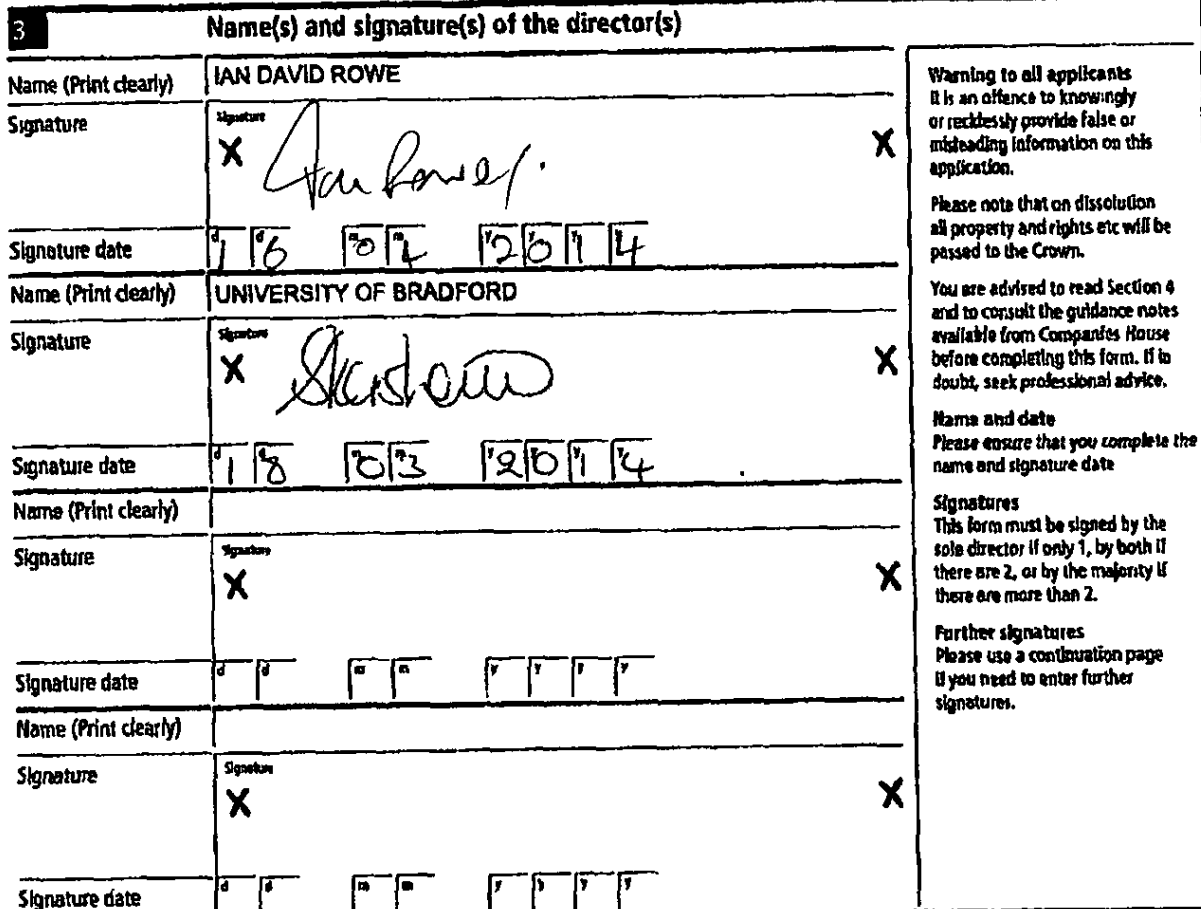 3 Name(s) and signature(s) of the director(s)
Name (Print clearly) IAN DAVID ROWE
Signature
Signature
X Ian Rowe X
Signature date d d m m y y y y
16 04 2014
Name (Print clearly) UNIVERSITY OF BRADFORD
Signature
Signature
X X
Signature date d d m m y y y y
18 03 2014
Name (Print clearly)
Signature
Signature
X X
Signature date d d m m y y y y
Name (Print clearly)
Signature
Signature
X X
Signature date d d m m y y y y
Warning to all applicants
It is an offence to knowingly
or recklessly provide false or
misleading information on this
application.
Please note that on dissolution
all property and rights etc will be
passed to the Crown.
You are advised to read Section 4
and to consult the guidance notes
available from Companies House
before completing this form. If in
doubt, seek professional advice.
Name and date
Please ensure that you complete the
name and signature date
Signatures
This form must be signed by the
sole director if only 1, by both if
there are 2, or by the majority if
there are more than 2.
Further signatures
Please use a continuation page
if you need to enter further
signatures.